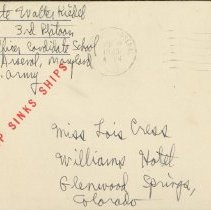 te Walter Kissel
3rd Platoon
fficer Candidate School
Arsenal, Maryland
. Army
P SINKS SHIPS
Miss Lois Cress
Williams Hotel
Glenwood Springs,
Colorado